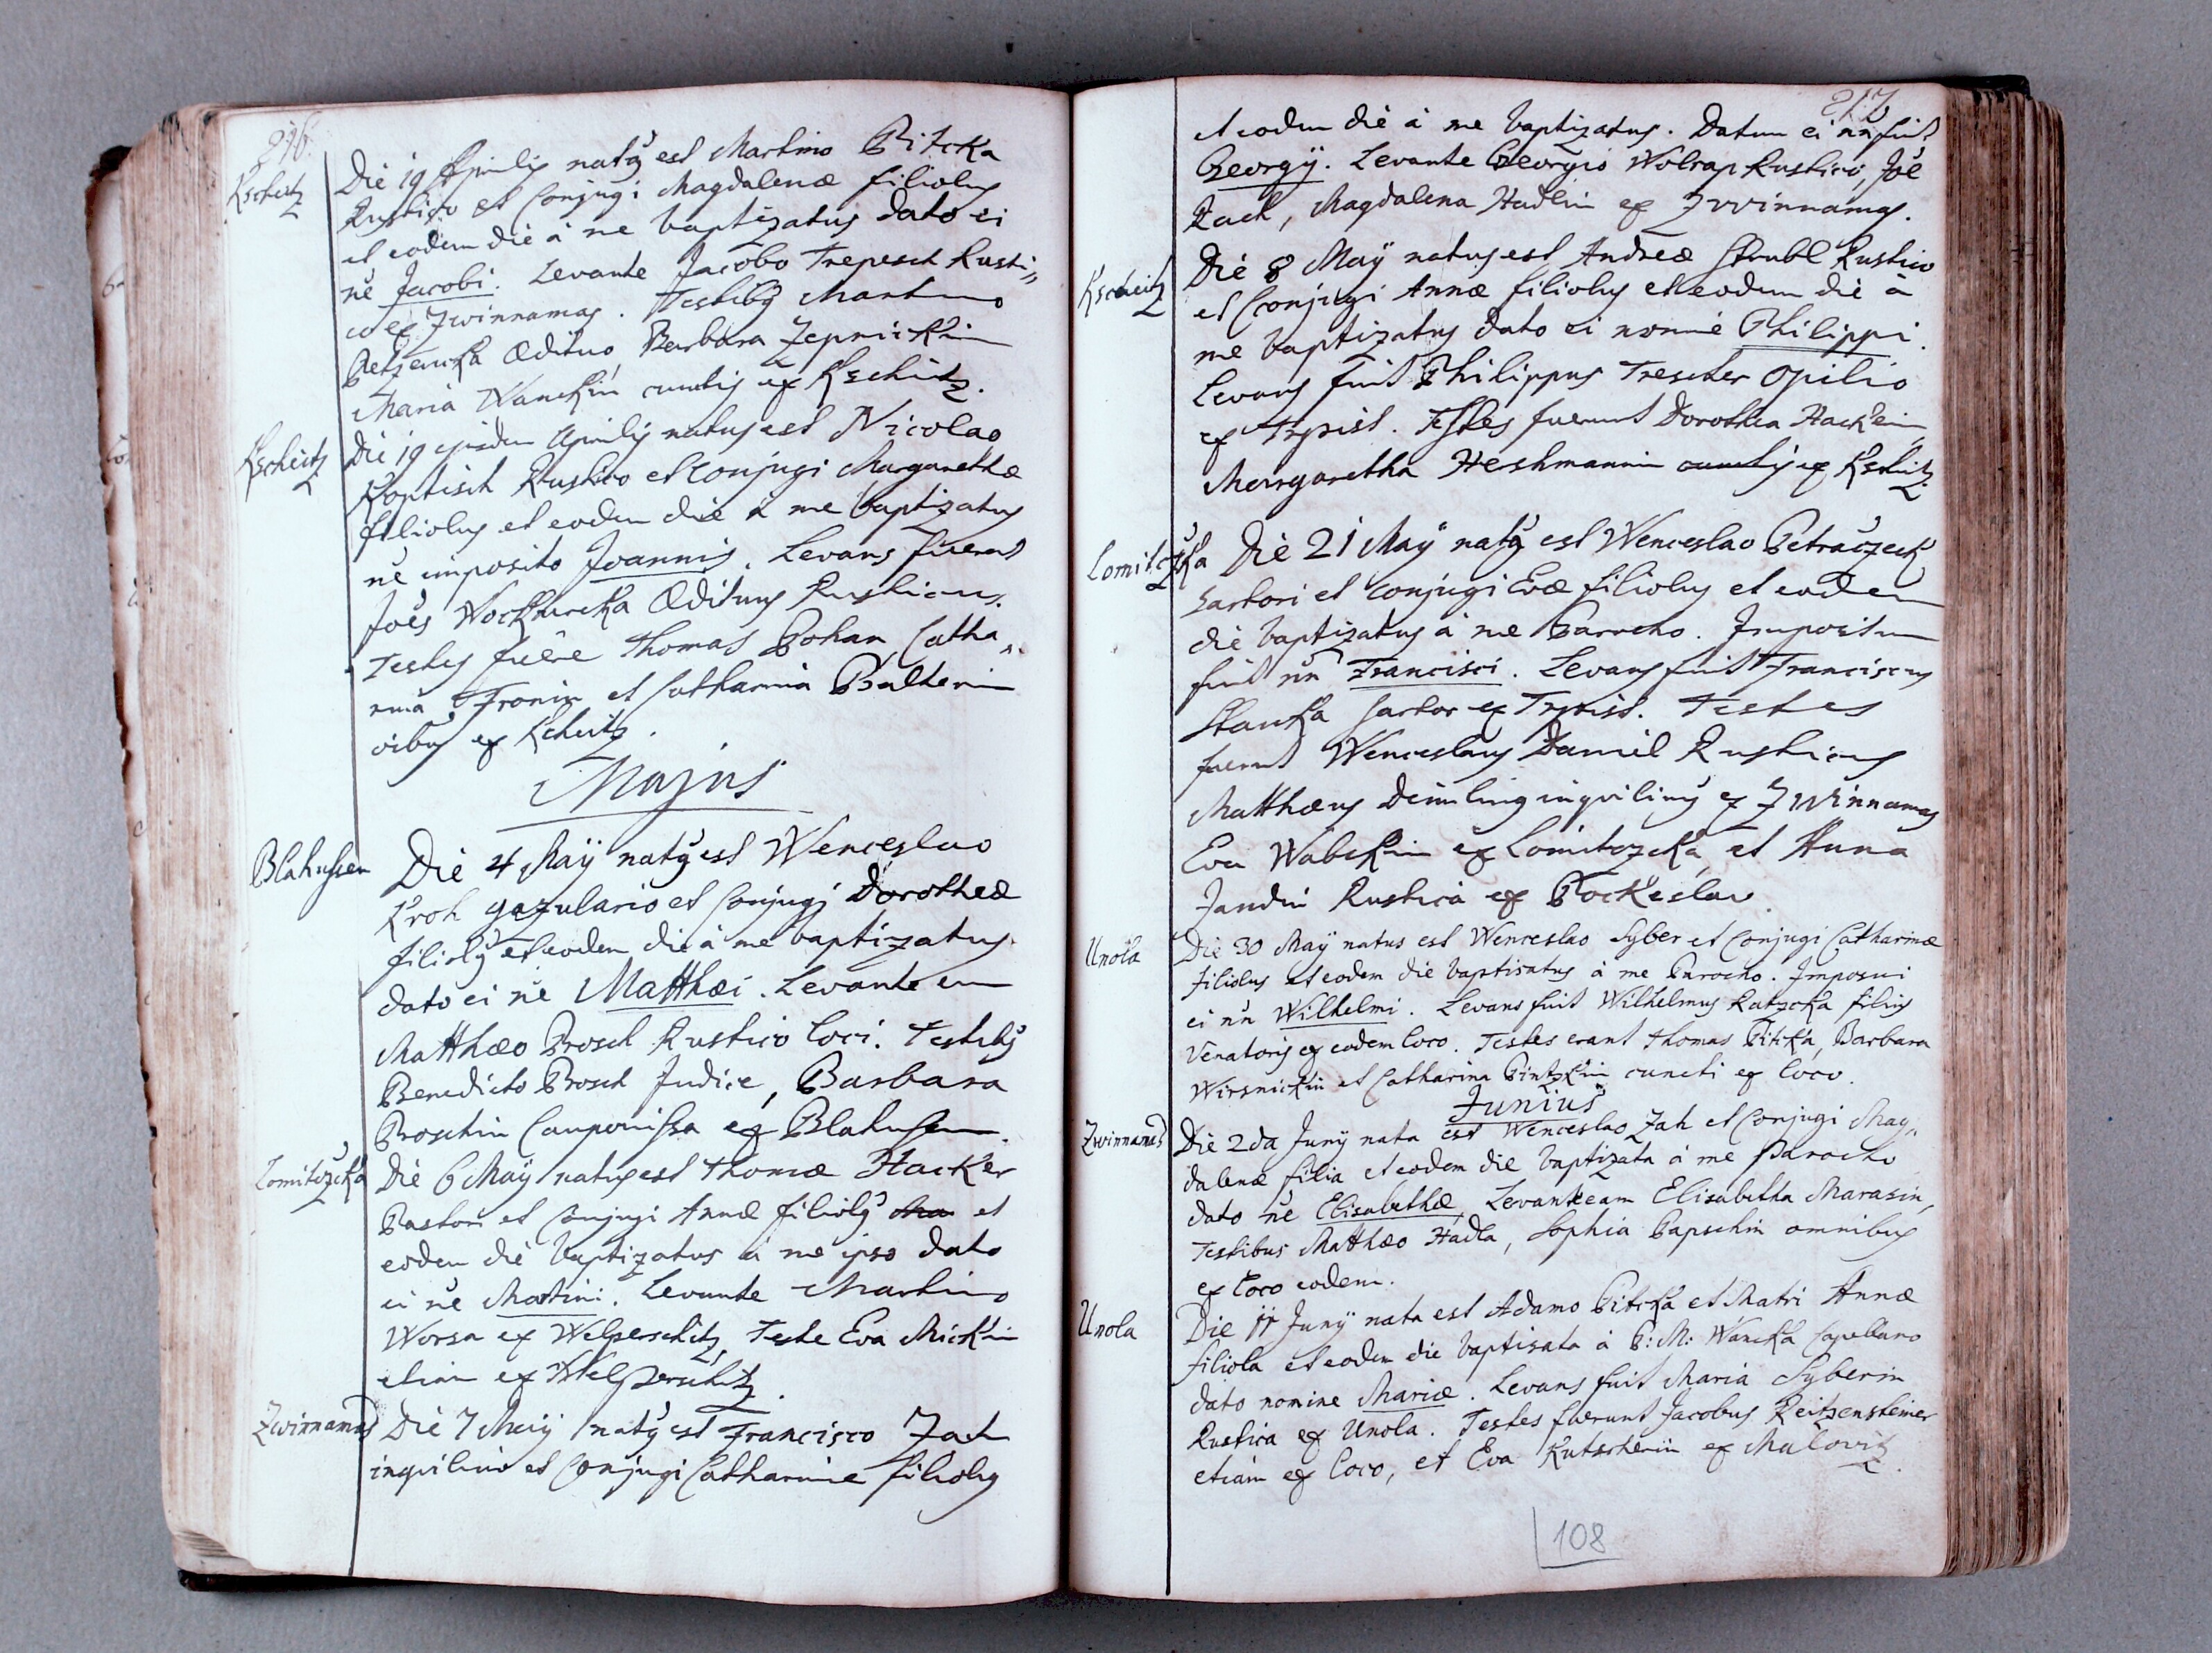 216.
Kscheitz
Die 19 Aprilis natg est Martino Pitcka
Rustico et Conjugi Magdalenæ filiolus
et eodem die à me baptizatus dato ei
nē Jacobi. Levante Jacobo Trepesch Rusti„
co ex Zwinnamas. Testibg Martino
Petzencka Ædituo, Barbara Zepnickin
Maria Wanckin cunctis ex Kscheitz.
Kscheitz
Die 19 ejusdem Aprilis natus est Nicolao
Koptisch Rustico et Conjugi Margarethæ
filiolus et eodem die à me baptizatus
nē imposito Joannis. Levans fuerat
Joēs Æditus Rusticus.
Testes fuēre Thomas Pohan, Catha„
rina Fronin et Catharina Balterin
oibus ex Kscheitz.
Majus
Blahussen
Die 4 Maÿ natg est Wenceslao
Kroh gazulario et Conjugi Dorotheæ
filiolg et eodem die à me baptizatus
dato ei nē Matthæi. Levante eum
Matthæo Prosch Rustico loci. Testibg
Benedicto Prosch Judice, Barbara
Proschin Cauponissa ex Blahussen.
Lomitczka
Die 6 Maÿ natus est Thomæ Hacker
Pastori et Conjugi Annæ filiolg et
eodem die baptizatus à me ipso dato
ei nē Martini. Levante Martino
Worsa ex Welperschitz, Teste Eva Mickin
etiam ex Welperschitz.
Zwinnamas
Die 7 Maÿ natg est Francisco Zach
inquilino et Conjugi Catharinæ filiolus
217
et eodem die à me baptizatus. Datum ei nn̄ fuit
Georgÿ. Levante Georgio Woltrap Rustico, Joē
Zach, Magdalena Hadlin ex Zwinnamas.
Kscheitz
Die 8 Maÿ natus est Andreæ Strubl Rustico
et Conjugi Annæ filiolus et eodem die à
me baptizatus dato ei nomine Philippi.
Levans fuit Philippus Trescher opilio
ex Trpist. Testes fuerunt Dorothea Hackein,
Margaretha Heshmannin cunctis ex Kscheitz.
Lomitczka
Die 21 Maÿ natg est Wenceslao Petraczeck
Sartori et Conjugi Evæ filiolus et eodem
die baptizatus à me Parocho. Impositum
fuit nn̄ Francisci. Levans fuit Franciscus
Stanka Sartor ex Trpist. Testes
fuerunt Wenceslaus Daniel Rusticus
Matthæus Deimling inquilinus ex Zwinnamas
Eva Wabckin ex Lomitczcka, et Anna
Jandin Rustica ex Pockeslau.
Unola
Die 30 Maÿ natus est Wenceslao Syber et Conjugi Catharinæ
filiolus et eodem die baptisatus à me Parocho. Imposui
ei nn̄ Wilhelmi. Levans fuit Wilhelmus Ratzcka filius
Venatoris ex eodem loco. Testes erant Thomas Pitcka, Barbara
Wirsnickin et Catharina Pintzkin cuncti ex loco.
Junius
Zwinnamas
Die 2da Junÿ nata est Wenceslao Zah et Conjugi Mag„
dalenæ filia et eodem die baptizata à me Parocho
dato nē Elisabethæ, Levante eam Elisabetha Marasin,
Testibus Matthæo Hadla, Sophia Papschin omnibus
ex loco eodem.
Unola
Die 11 Junÿ nata est Adamo Pitcka et Matri Annæ
filiola et eodem die baptisata à P: M: Wancka Capellano
dato nomine Mariæ. Levans fuit Maria Syberin
Rustica ex Unola. Testes fuerunt Jacobus Reitzensteiner
etiam ex loco, et Eva Kutscherin ex Malovitz.
108